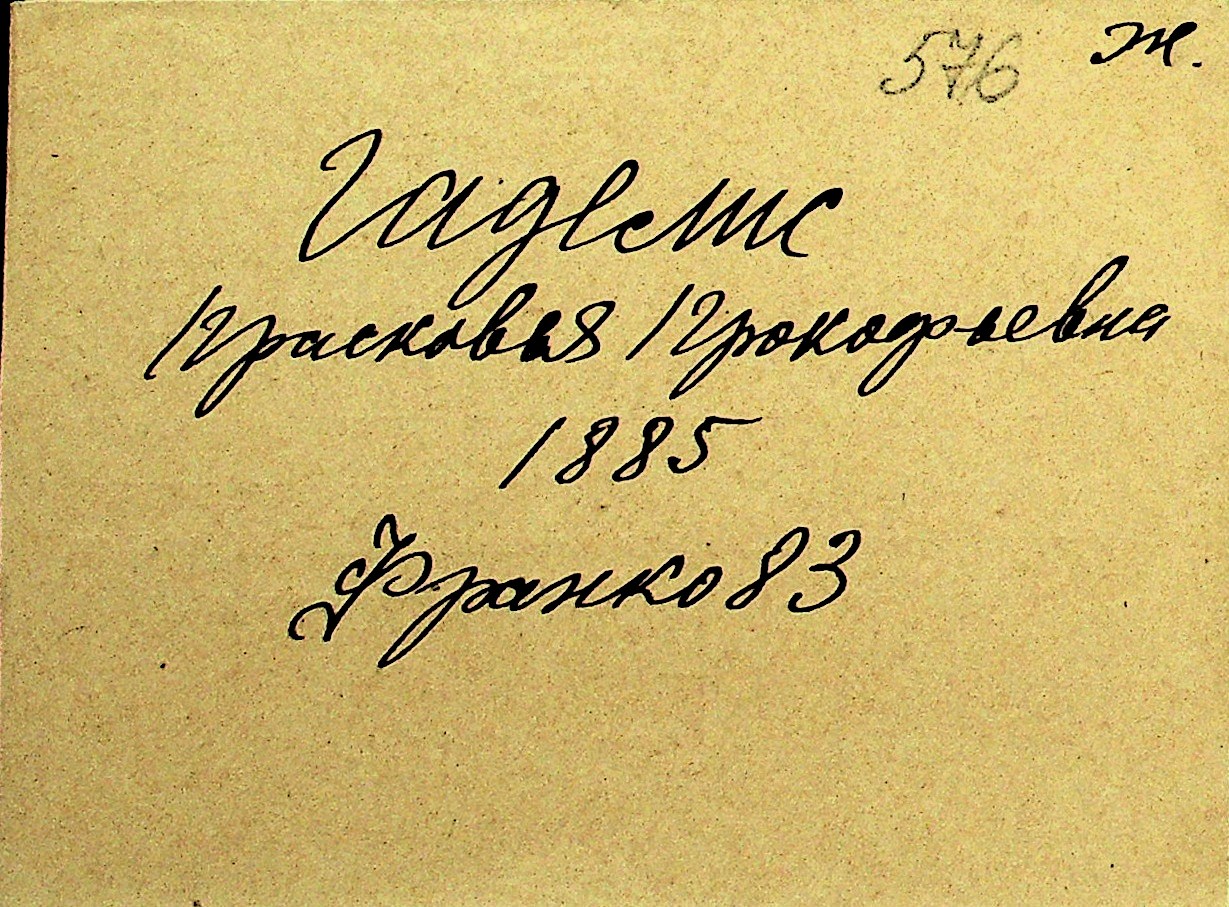 576 ж.
Прасковья Прокофьевна
1885
Франко 83